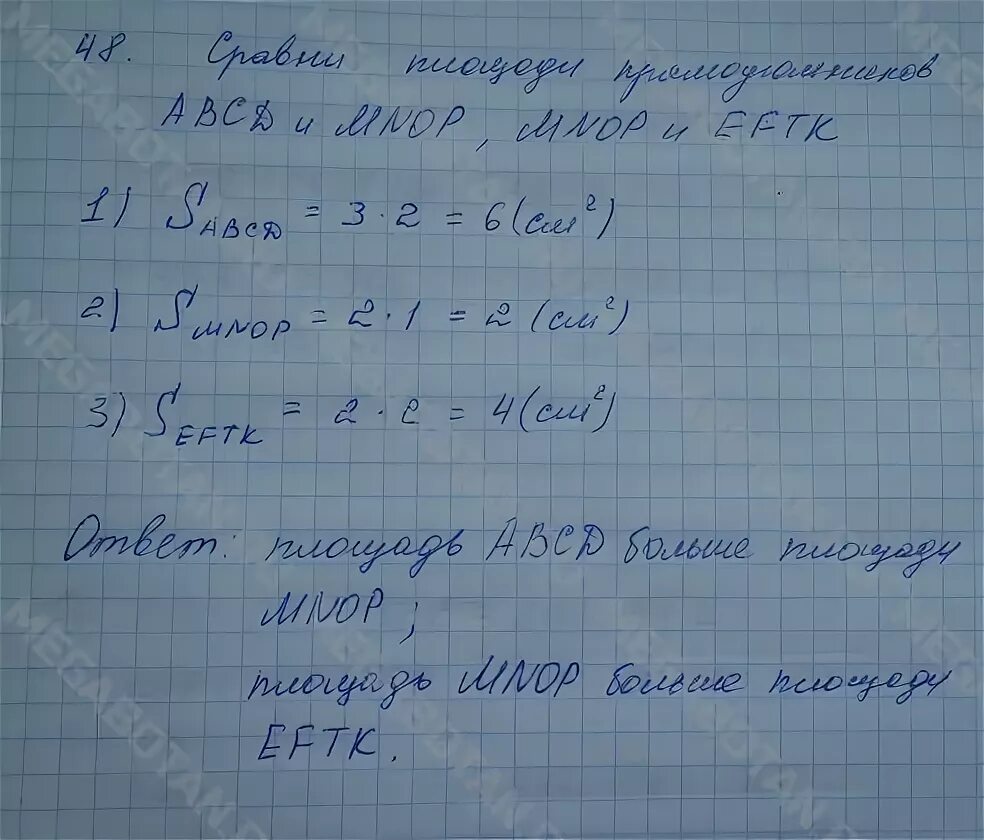 48. Сравни площади прямоугольников
ABCD и MNOP, MNOP и EFTK
1) S ABCD = 3 · 2 = 6 (см²)
2) S MNOP = 2 · 1 = 2 (см²)
3) S EFTK = 2 · 2 = 4 (см²)
Ответ: площадь ABCD больше площади
MNOP;
площадь MNOP больше площади
EFTK.